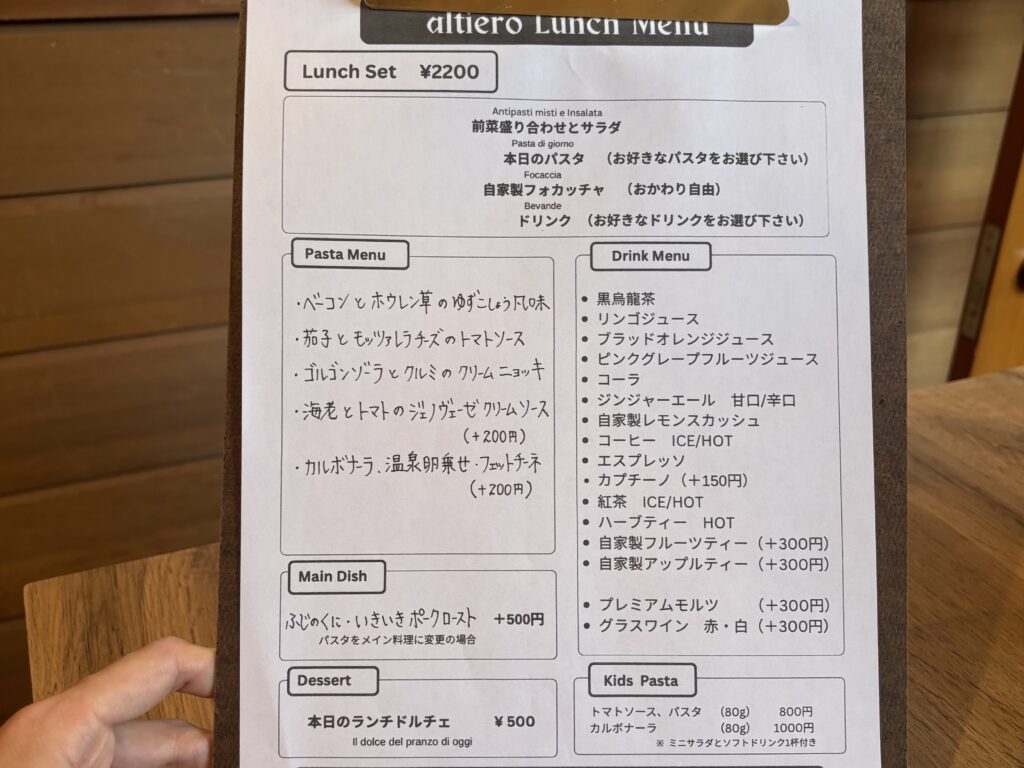 altiero Lunch Menu
Lunch Set ¥2200
Antipasti misti e Insalata
前菜盛り合わせとサラダ
Pasta di giorno
本日のパスタ (お好きなパスタをお選び下さい)
Focaccia
自家製フォカッチャ (おかわり自由)
Bevande
ドリンク (お好きなドリンクをお選び下さい)
Pasta Menu
・ベーコンとホウレン草のゆずこしょう風味
・茄子とモッツァレラチーズのトマトソース
・ゴルゴンゾーラとクルミのクリームニョッキ
・海老とトマトのジェノヴェーゼクリームソース
(+200円)
・カルボナーラ、温泉卵乗せ・フェットチーネ
(+200円)
Drink Menu
• 黒烏龍茶
• リンゴジュース
• ブラッドオレンジジュース
• ピンクグレープフルーツジュース
• コーラ
• ジンジャーエール 甘口/辛口
• 自家製レモンスカッシュ
• コーヒー ICE/HOT
• エスプレッソ
• カプチーノ(+150円)
• 紅茶 ICE/HOT
• ハーブティー HOT
• 自家製フルーツティー(+300円)
• 自家製アップルティー(+300円)
• プレミアムモルツ (+300円)
• グラスワイン 赤・白(+300円)
Main Dish
ふじのくに・いきいきポークロースト +500円
パスタをメイン料理に変更の場合
Dessert
本日のランチドルチェ ¥500
Il dolce del pranzo di oggi
Kids Pasta
トマトソース、パスタ (80g) 800円
カルボナーラ (80g) 1000円
※ ミニサラダとソフトドリンク1杯付き